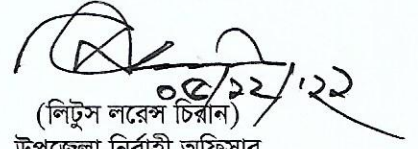 ০৫/১২/২২
(লিটুস লরেন্স চিরান)
উপজেলা নির্বাহী অফিসার